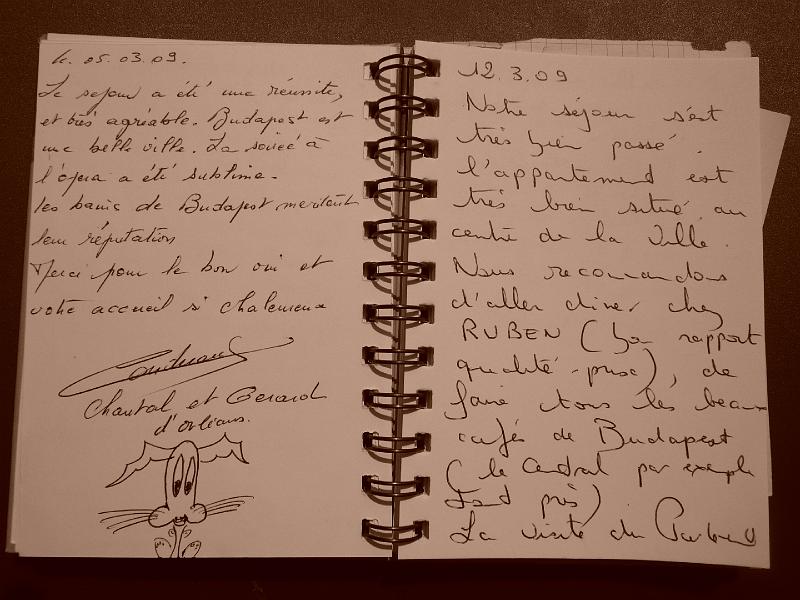 le 05.03.09.
Le sejour a été une réussite,
et très agréable. Budapest est
une belle ville. La soirée à
l'opera a été sublime.
les bains de Budapest meritent
leur réputation
Merci pour le bon vin et
votre accueil si chaleureux
Chantal et Gerard
d'orléans.
12.3.09
Notre séjour s'est
très bien passé.
l'appartement est
très bien situé au
centre de la Ville.
Nous recomandons
d'aller diner chez
RUBEN (bon rapport
qualité-prix), de
faire tous les beaux
cafés de Budapest
(le Central par exemple
tout près)
La visite du